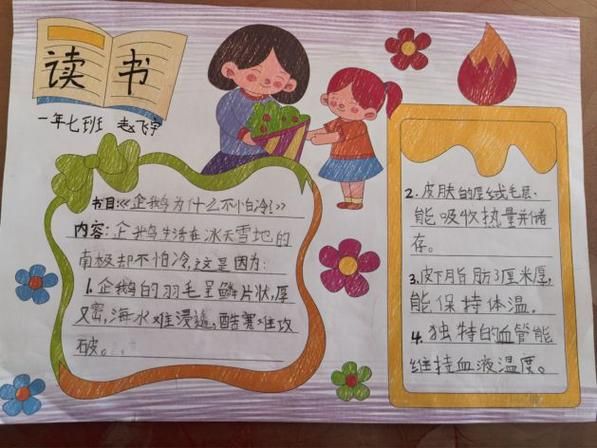 读书
一年七班 赵飞宇
书目:《企鹅为什么不怕冷?》
内容:企鹅生活在冰天雪地的
南极却不怕冷,这是因为:
1.企鹅的羽毛呈鳞片状,厚
又密,海水难浸透,酷寒难攻
破。
2.皮肤的厚绒毛层,
能吸收热量并储
存。
3.皮下脂肪3厘米厚,
能保持体温.
4.独特的血管能
维持血液温度。